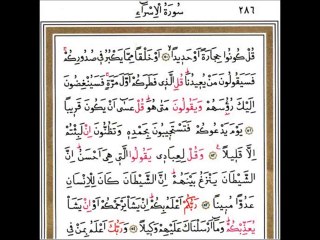 ٢٨٦ سُورَةُ الْإِسْرَاءِ
قُلْ كُونُوا حِجَارَةً أَوْ حَدِيدًا ۝ أَوْ خَلْقًا مِمَّا يَكْبُرُ فِي صُدُورِكُمْ
فَسَيَقُولُونَ مَنْ يُعِيدُنَا قُلِ الَّذِي فَطَرَكُمْ أَوَّلَ مَرَّةٍ فَسَيُنْغِضُونَ
إِلَيْكَ رُؤُسَهُمْ وَيَقُولُونَ مَتَى هُوَ قُلْ عَسَى أَنْ يَكُونَ قَرِيبًا
۝ يَوْمَ يَدْعُوكُمْ فَتَسْتَجِيبُونَ بِحَمْدِهِ وَتَظُنُّونَ إِنْ لَبِثْتُمْ
إِلَّا قَلِيلًا ۝ وَقُلْ لِعِبَادِي يَقُولُوا الَّتِي هِيَ أَحْسَنُ إِنَّ
الشَّيْطَانَ يَنْزَغُ بَيْنَهُمْ إِنَّ الشَّيْطَانَ كَانَ لِلْإِنْسَانِ
عَدُوًّا مُبِينًا ۝ رَبُّكُمْ أَعْلَمُ بِكُمْ إِنْ يَشَأْ يَرْحَمْكُمْ أَوْ إِنْ يَشَأْ
يُعَذِّبْكُمْ وَمَا أَرْسَلْنَاكَ عَلَيْهِمْ وَكِيلًا ۝ وَرَبُّكَ أَعْلَمُ بِمَنْ فِي